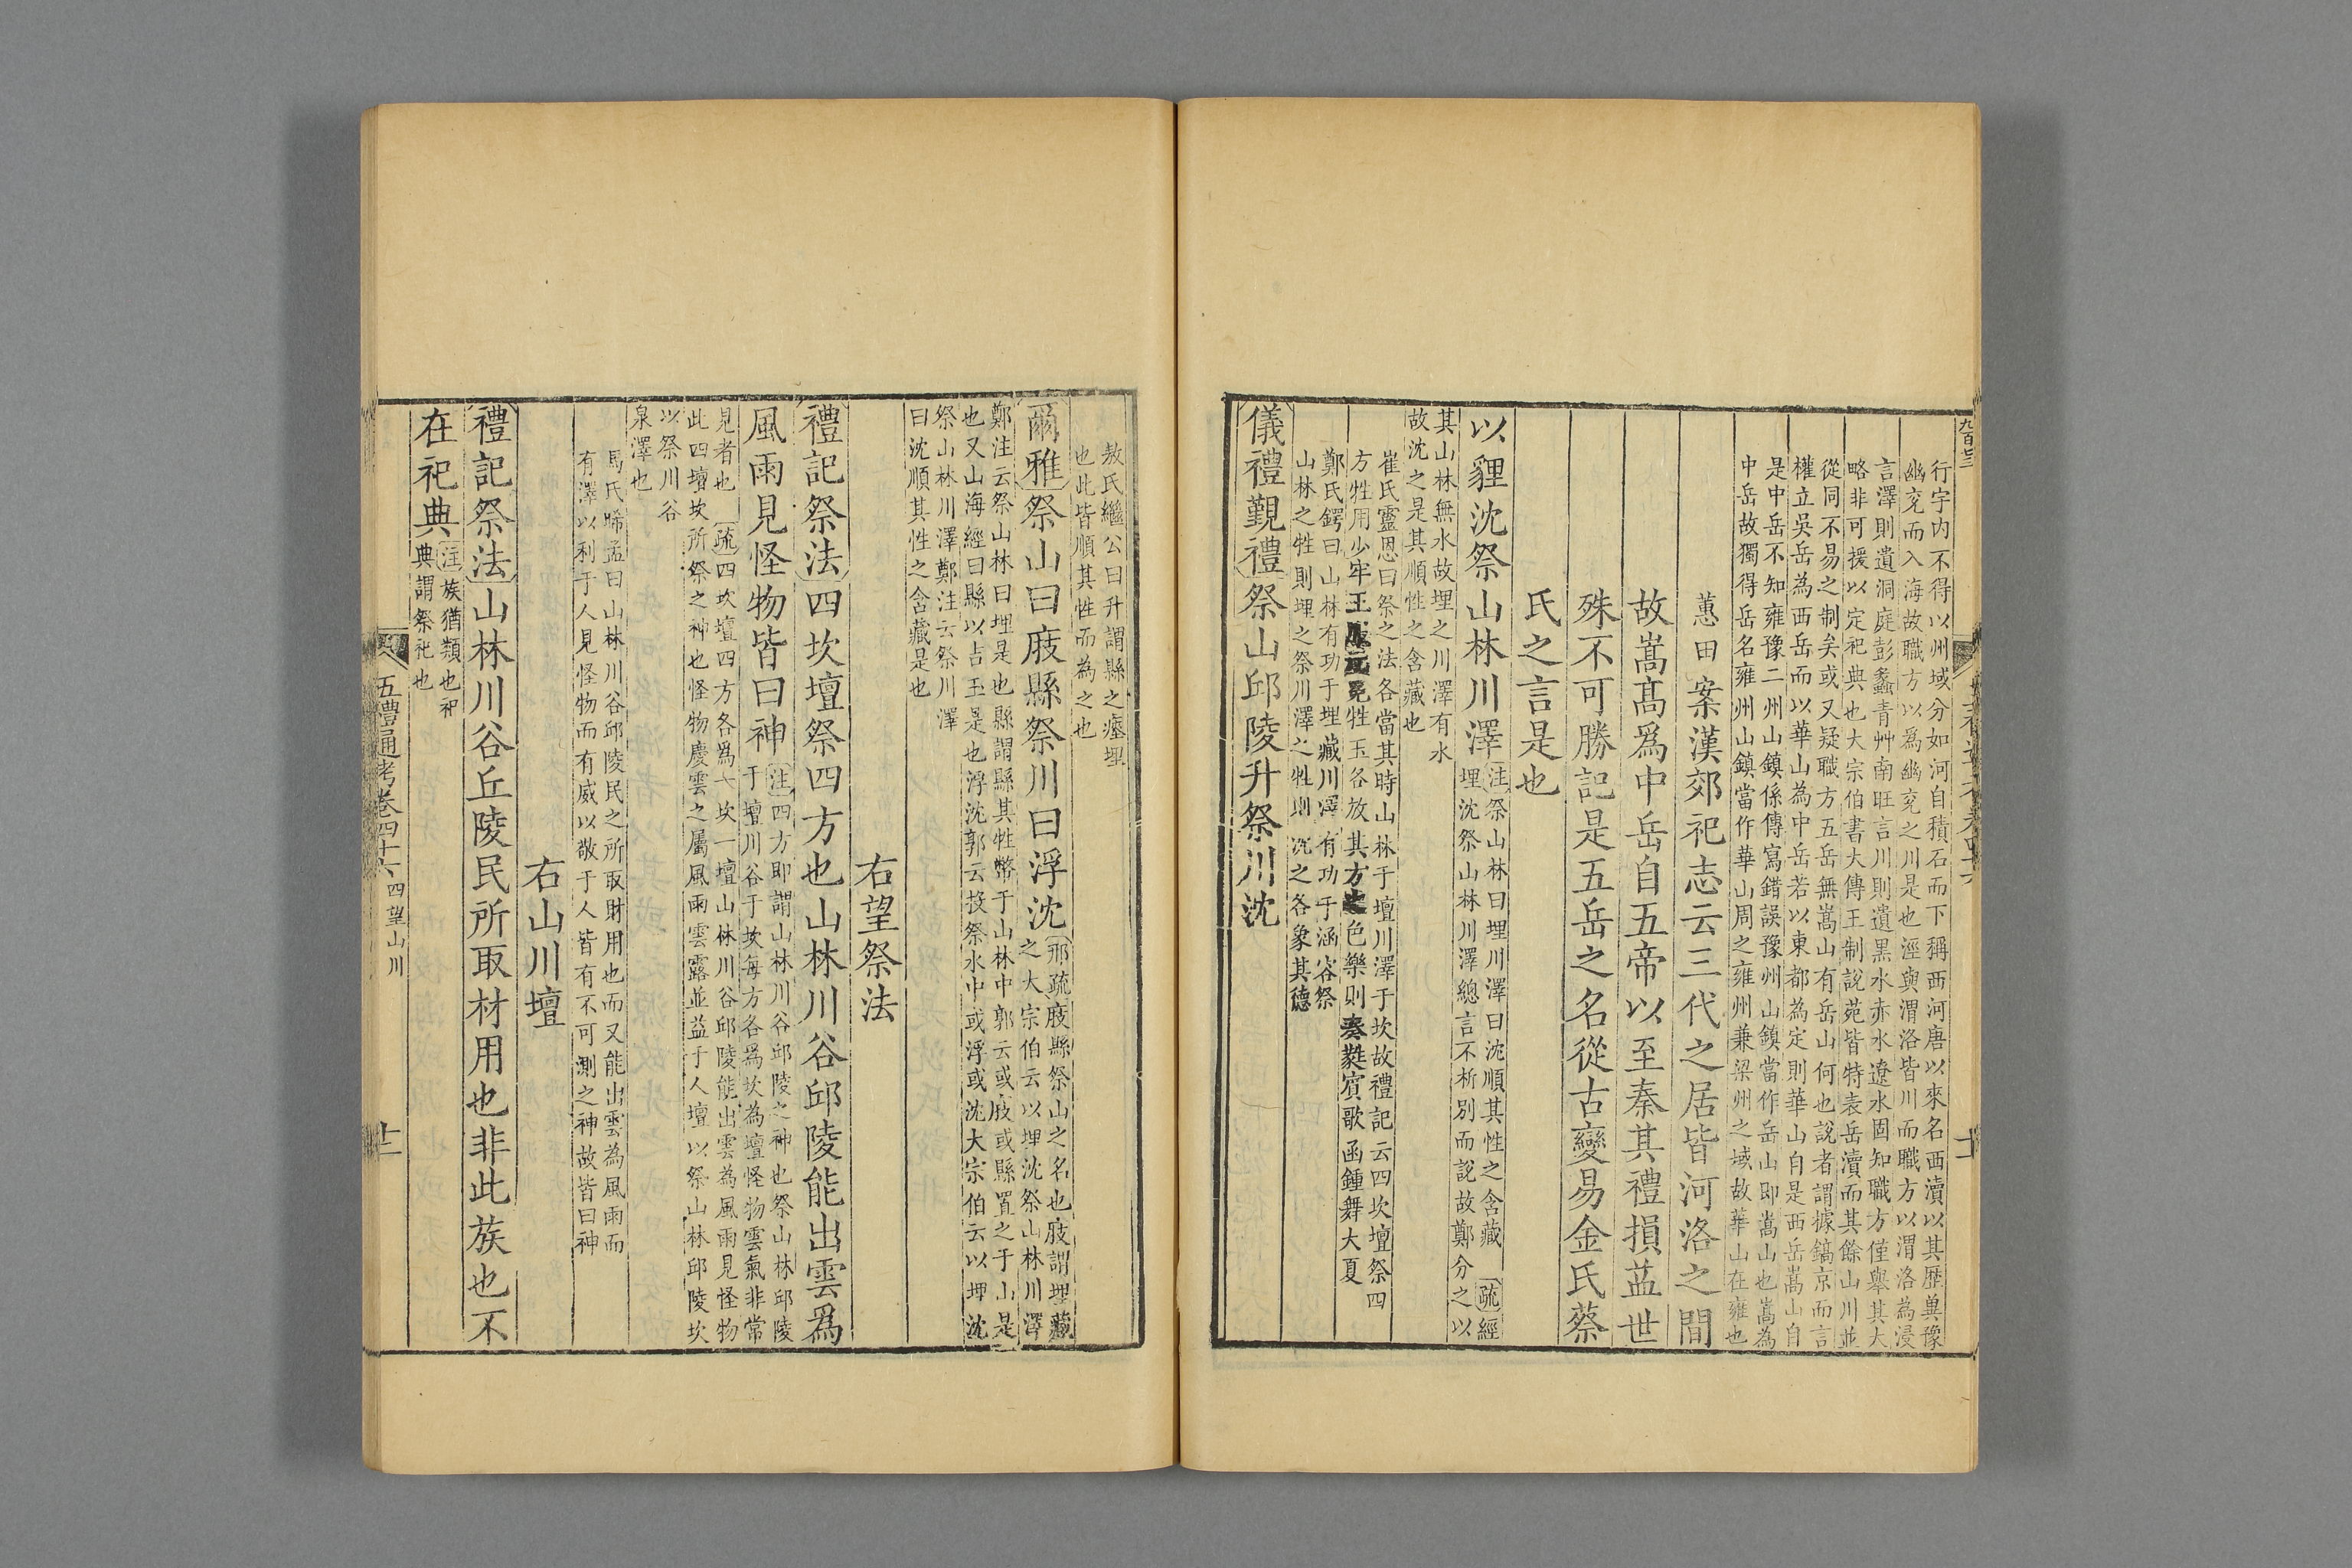 行字内不得以州域分如河自積石而下稱西河唐以來名西瀆以其歷兾豫
幽兖而入海故職方以爲幽兖之川是也涇與渭洛皆川而職方以渭洛為浸
言澤則遺洞庭彭蠡青艸南旺言川則遺黑水赤水遼水固知職方僅舉其大
略非可援以定祀典也大宗伯書大傳王制說苑皆特表岳瀆而其餘山川並
從同不易之制矣或又疑職方五岳無嵩山有岳山何也說者謂據鎬京而言
權立吳岳為西岳而以華山為中岳若以東都為定則華山自是西岳嵩山自
是中岳不知雍豫二州山鎮係傳寫錯誤豫州山鎮當作岳山即嵩山也嵩為
中岳故獨得岳名雍州山鎮當作華山周之雍州兼梁州之域故華山在雍也
蕙田案漢郊祀志云三代之居皆河洛之間
故嵩髙爲中岳自五帝以至秦其禮損益世
殊不可勝記是五岳之名從古變易金氏蔡
氏之言是也
以貍沈祭山林川澤
注祭山林曰埋川澤曰沈順其性之含藏 疏經
埋沈祭山林川澤總言不析別而說故鄭分之以
其山林無水故埋之川澤有水
故沈之是其順性之含藏也
崔氏靈恩曰祭之法各當其時山林于壇川澤于坎故禮記云四坎壇祭四
方牲用少牢王 冕牲玉各放其方之色樂則奏蕤賓歌函鍾舞大夏
鄭氏鍔曰山林有功于埋藏川澤有功于涵容祭
山林之牲則埋之祭川澤之牲則沈之各象其德
儀禮覲禮祭山邱陵升祭川沈
敖氏繼公曰升謂縣之瘞埋
也此皆順其性而為之也
爾雅祭山曰庪縣祭川曰浮沈
邢疏庪縣祭山之名也庪謂埋藏
之大宗伯云以埋沈祭山林川澤
鄭注云祭山林曰埋是也縣謂縣其牲幣于山林中郭云或庪或縣置之于山是
也又山海經曰縣以吉玉是也浮沈郭云投祭水中或浮或沈大宗伯云以埋沈
祭山林川澤鄭注云祭川澤
曰沈順其性之含藏是也
右望祭法
禮記祭法四坎壇祭四方也山林川谷邱陵能出雲爲
風雨見怪物皆曰神
注四方即謂山林川谷邱陵之神也祭山林邱陵
于壇川谷于坎每方各爲坎為壇怪物雲氣非常
見者也 疏四坎壇四方各爲一坎一壇山林川谷邱陵能出雲為風雨見怪物
此四壇坎所祭之神也怪物慶雲之屬風雨雲露並益于人壇以祭山林邱陵坎
以祭川谷
泉澤也
馬氏晞孟曰山林川谷邱陵民之所取財用也而又能出雲為風雨而
有澤以利于人見怪物而有威以敬于人皆有不可測之神故皆曰神
右山川壇
禮記祭法山林川谷丘陵民所取材用也非此族也不
在祀典
注族猶類也祀
典謂祭祀也
五禮通考卷四十六 四望山川
十二